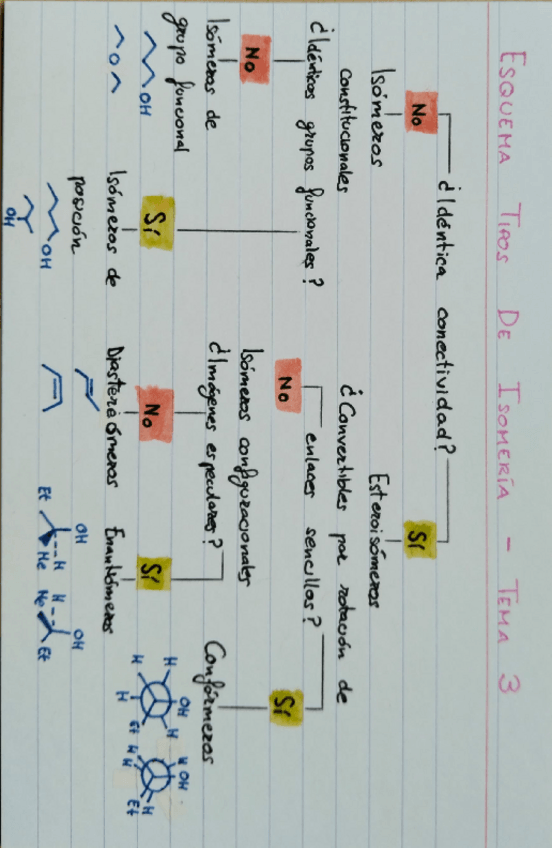 ESQUEMA TIPOS DE ISOMERÍA - TEMA 3
¿Idéntica conectividad?
No
Sí
Isómeros
constitucionales
Esteroisómeros
¿Idénticos grupos funcionales?
¿Convertibles por rotación de
enlaces sencillos?
No
Sí
No
Sí
Isómeros de
grupo funcional
OH
O
Isómeros de
posición
OH
OH
Isómeros configuracionales
¿Imágenes especulares?
No
Sí
Diastereómeros
Enantiómeros
OH
H
Et
Me
OH
H
Me
Et
Confórmeros
OH
H
H
H
H
Et
OH
H
H
Et